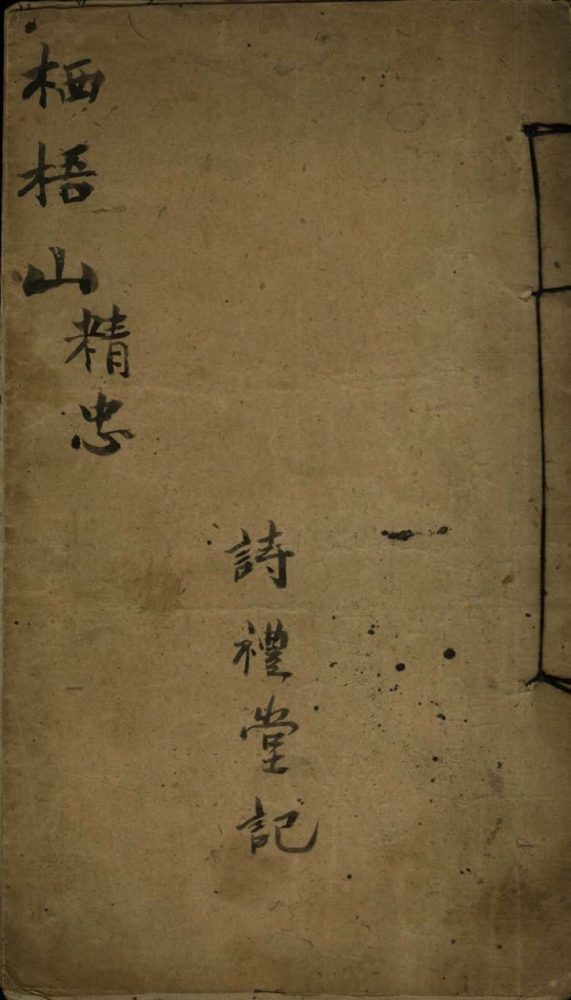 栖梧山精忠
詩禮堂記